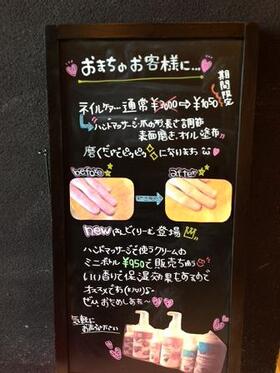 おまちのお客様に…
期間限定
ネイルケアー通常 ¥3000⇒¥1050
ハンドマッサージ・爪の形、長さ調節
表面磨き、オイル塗布
磨くだけでピカピカになります
before
after
new 登場
ハンドマッサージで使うクリームの
ミニボトル¥950で販売ちゅう
いい香りで保湿効果もあるので
オススメです
ぜひおためしあれ〜
気軽に
お声がけください